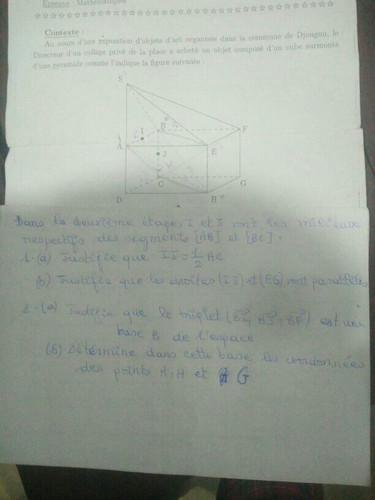 Epreuve : Mathématiques
☆☆☆☆☆☆☆☆☆☆☆☆☆☆☆☆☆☆☆☆☆☆☆☆☆☆☆☆☆☆☆☆☆☆☆☆
Contexte :
Au cours d'une exposition d'objets d'art organisée dans la commune de Djougou, le
Directeur d'un collège privé de la place a acheté un objet composé d'un cube surmonté
d'une pyramide comme l'indique la figure suivante :
S
B F
I
A E
J
C G
D H
Dans la deuxième étape, I et J sont les milieux
respectifs des segments [AB] et [BC] :
1-(a) Justifie que IJ = 1/2 AC
b) Justifie que les droites (IJ) et (EG) sont parallèles
2-(a) Justifie que le triplet (, , BF) est une
base B de l'espace
(b) Détermine dans cette base les coordonnées
des points A, H et G